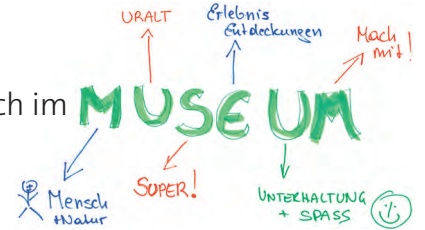 URALT
Erlebnis
Entdeckungen
Mach
mit!
ch im MUSEUM
Mensch
+Natur
SUPER!
UNTERHALTUNG
+ SPASS